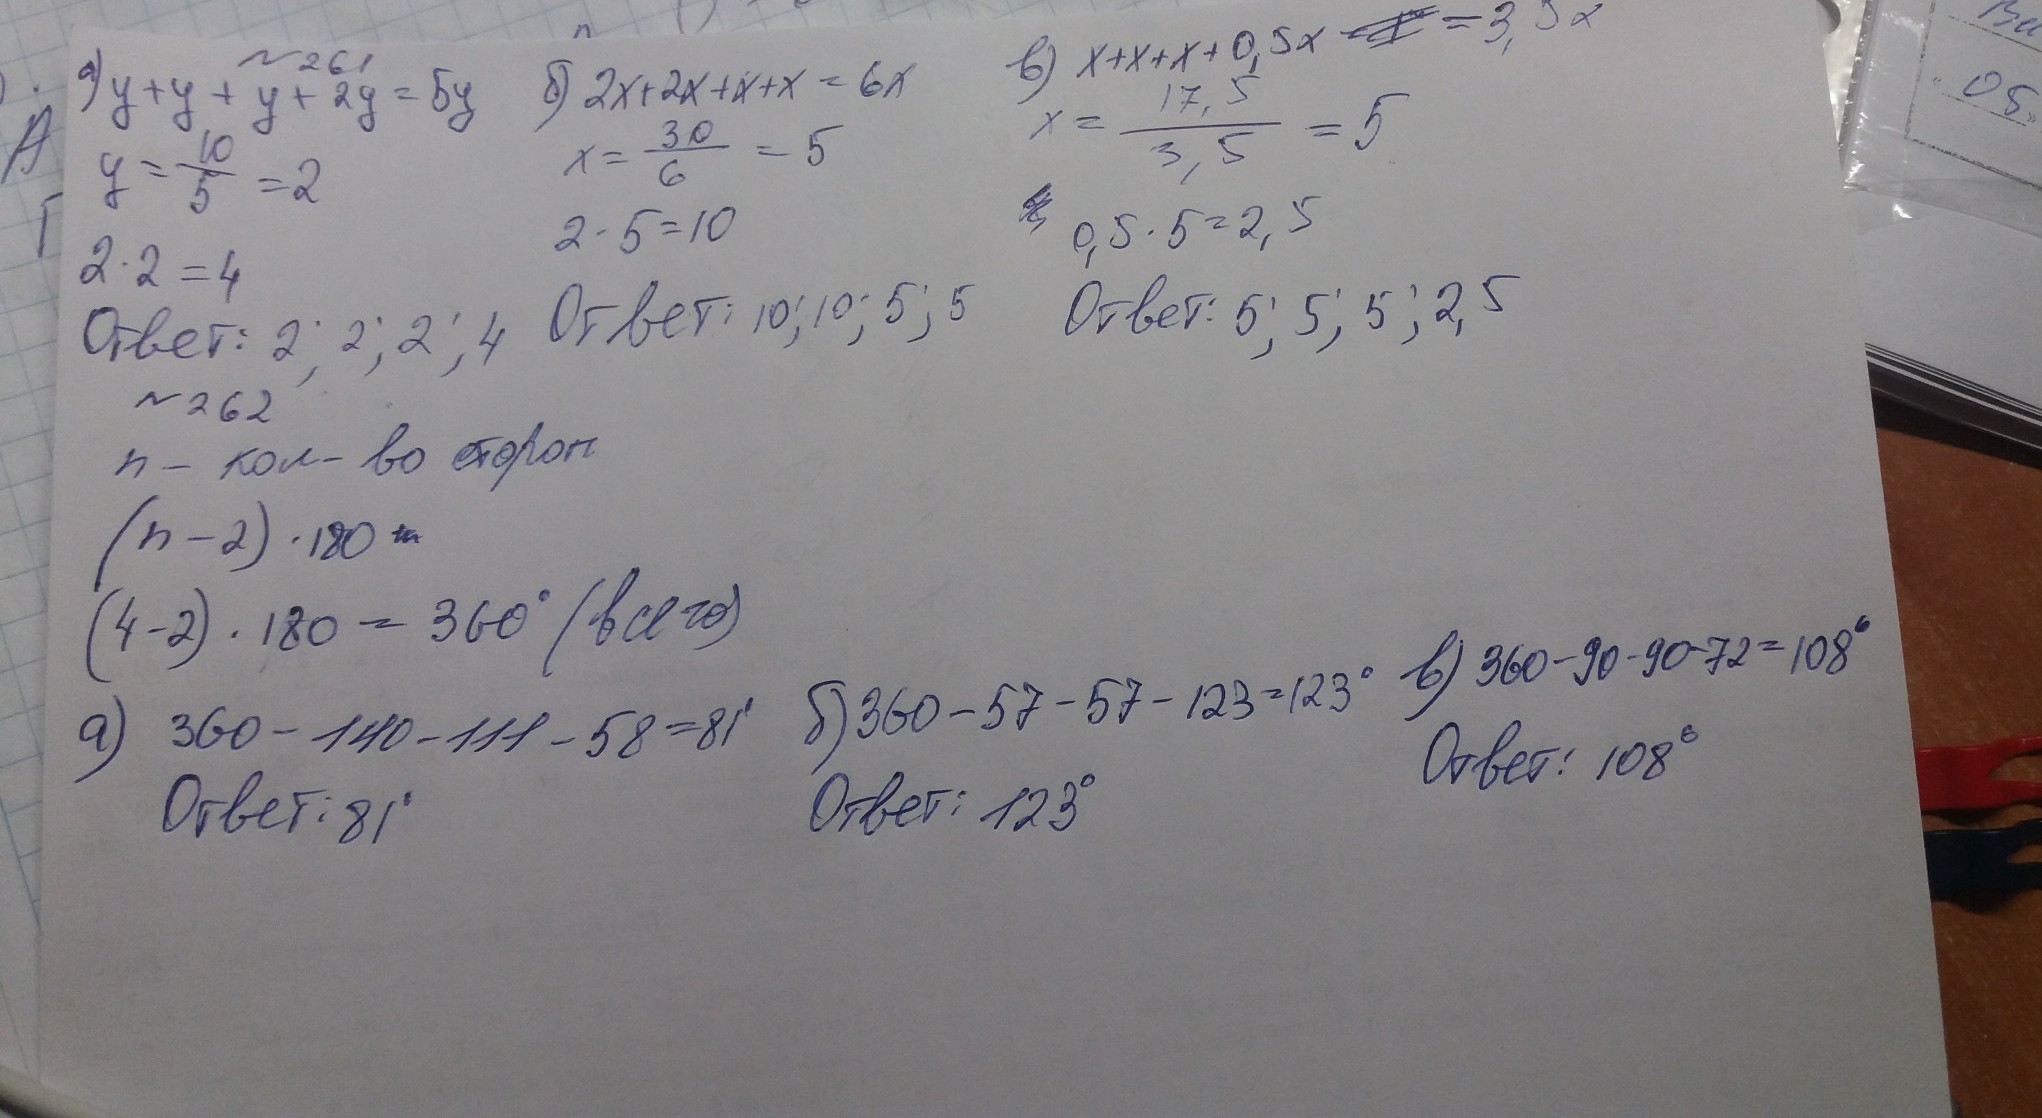 ~261
а) y+y+y+2y=5y
y=10/5=2
2·2=4
Ответ: 2; 2; 2; 4
б) 2x+2x+x+x=6x
x=30/6=5
2·5=10
Ответ: 10; 10; 5; 5
в) x+x+x+0,5x=3,5x
x=17,5/3,5=5
0,5·5=2,5
Ответ: 5; 5; 5; 2,5
~262
n - кол-во сторон
(n-2)·180
(4-2)·180=360° (всего)
а) 360-140-111-58=81°
Ответ: 81°
б) 360-57-57-123=123°
Ответ: 123°
в) 360-90-90-72=108°
Ответ: 108°
А
Г
05